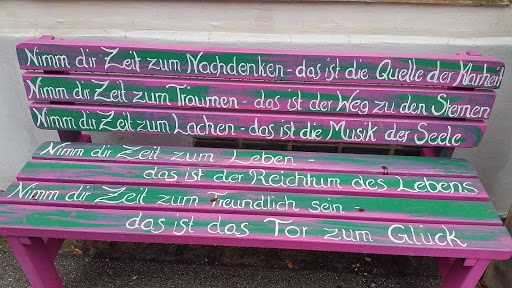 Nimm dir Zeit zum Nachdenken - das ist die Quelle der Klarheit
Nimm dir Zeit zum Träumen - das ist der Weg zu den Sternen
Nimm dir Zeit zum Lachen - das ist die Musik der Seele
Nimm dir Zeit zum Leben -
das ist der Reichtum des Lebens
Nimm dir Zeit zum Freundlich sein -
das ist das Tor zum Glück